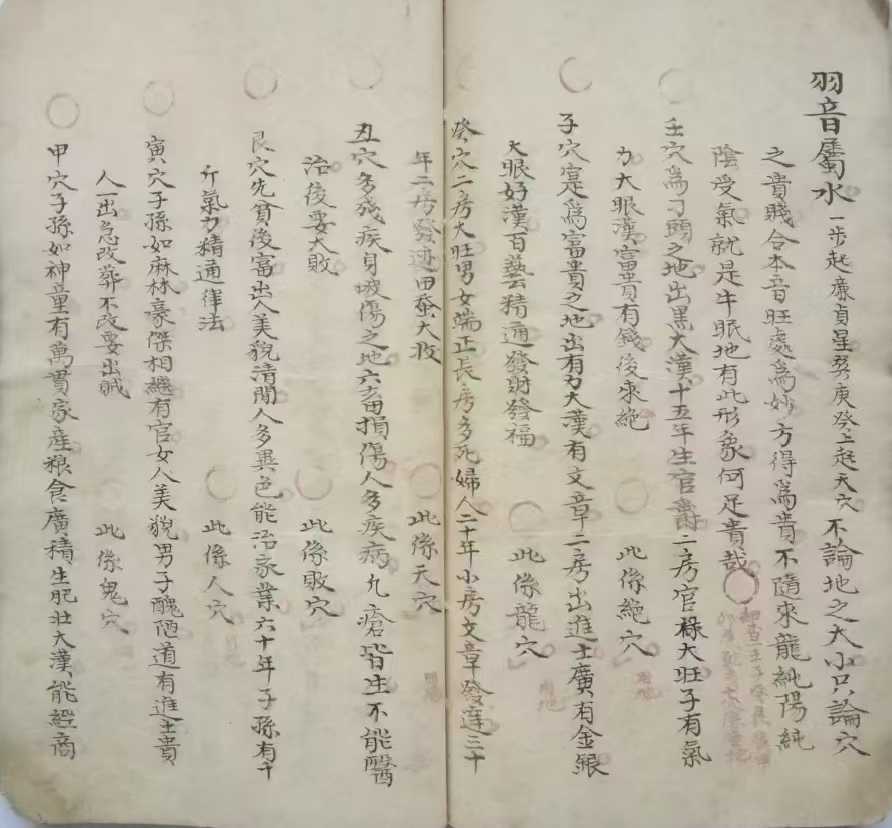 羽音屬水 一步起廉貞星癸庚癸上起天穴 不論地之大小只論穴
之貴賤合本音旺處為妙方得為貴不隨來龍純陽純
陰受氣就是牛眠地有此形象何足貴哉
壬穴為刁頭之地出黑大漢十五年生官壽二房官祿大旺子有氣
力大眼漢富貴有錢後來絕 此係絕穴
子穴寔為富貴之地出有力大漢有文章二房出進士廣有金銀
大眼好漢百藝精通發財發福 此係龍穴
癸穴二房大旺男女端正長房多死婦人二十年小房文章發達三十
年二房發迹田蚕大收 此係天穴
丑穴多殘疾身坡傷之地六畜損傷人多疾病九瘡皆生不能醫
治後要大敗 此係敗穴
艮穴先貧後富出人美貌清閒人多異色能治家業六十年子孫有千
斤氣力精通律法 此係人穴
寅穴子孫如麻林豪傑相繼有官女人美貌男子醜陋道有進士貴
人一出急改葬不改要出賊 此係鬼穴
甲穴子孫如神童有萬貫家産粮食廣積生肥壯大漢能經商